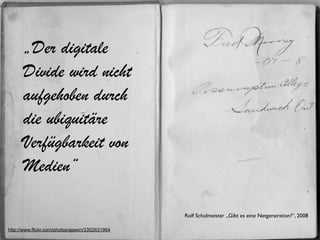 „Der digitale
Divide wird nicht
aufgehoben durch
die ubiquitäre
Verfügbarkeit von
Medien“
Assumption College
Sandwich Ont
Rolf Schulmeister „Gibt es eine Netgeneration?“, 2008
http://www.flickr.com/photos/ajawin/3302631964